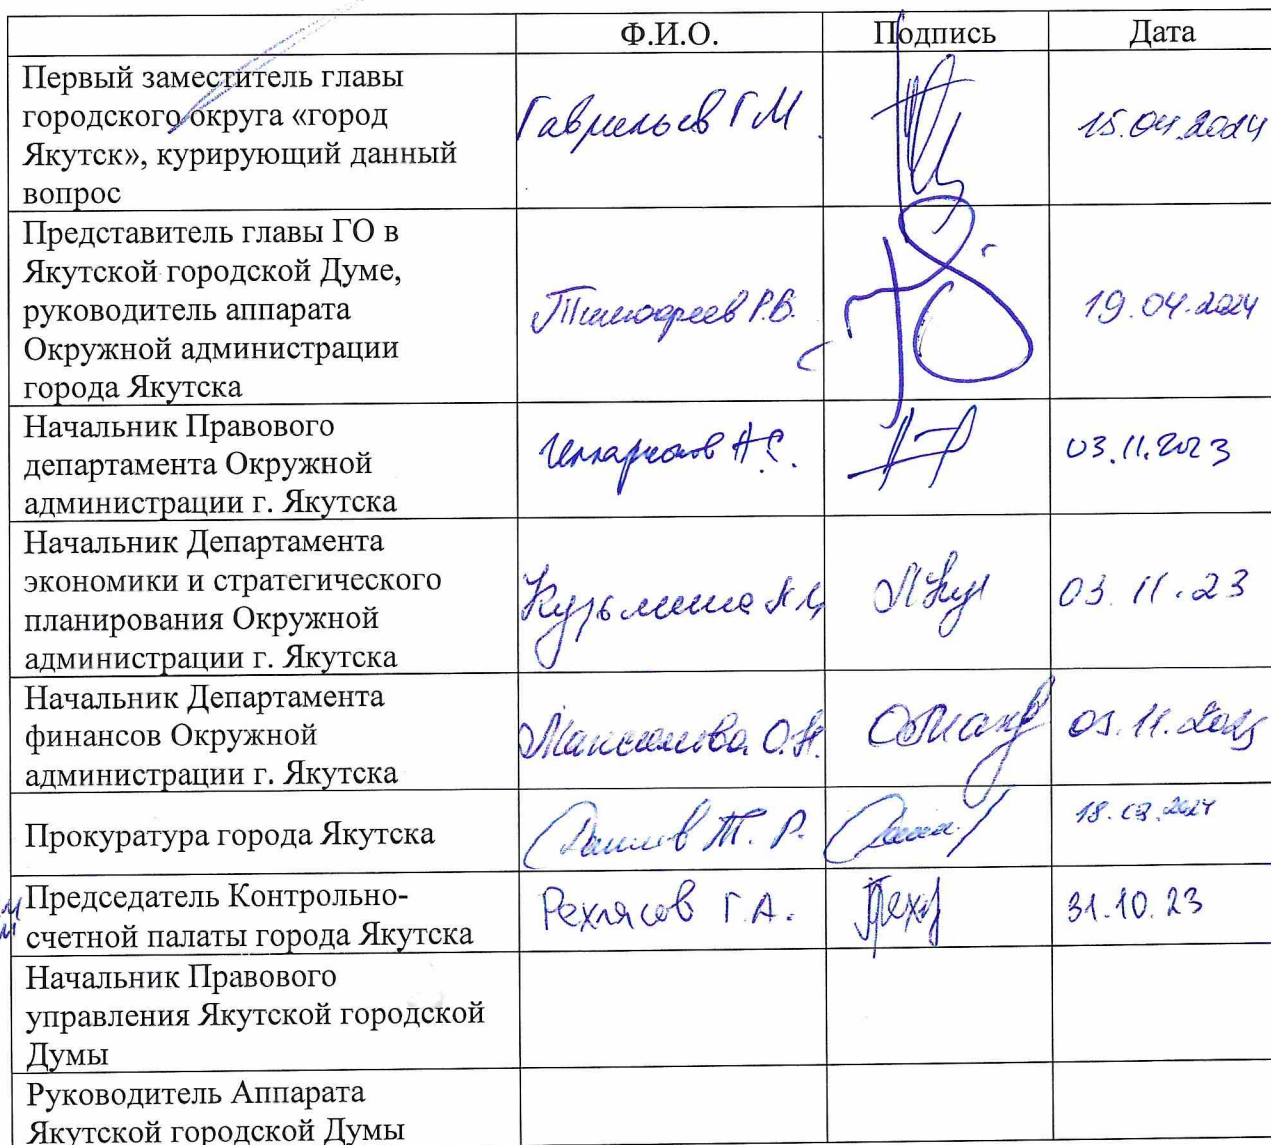 Ф.И.О. Подпись Дата
Первый заместитель главы
городского округа «город
Якутск», курирующий данный
вопрос
Гаврильев Г М 15.04.2024
Представитель главы ГО в
Якутской городской Думе,
руководитель аппарата
Окружной администрации
города Якутска
Тимофеев Р.В. 19.04.2024
Начальник Правового
департамента Окружной
администрации г. Якутска
А.С. 03.11.2023
Начальник Департамента
экономики и стратегического
планирования Окружной
администрации г. Якутска
Кузьмина 03.11.23
Начальник Департамента
финансов Окружной
администрации г. Якутска
Максимова О.Н. 03.11.2023
Прокуратура города Якутска
Т. Р.
Председатель Контрольно-
счетной палаты города Якутска
Рехлясов Г.А. 31.10.23
Начальник Правового
управления Якутской городской
Думы
Руководитель Аппарата
Якутской городской Думы